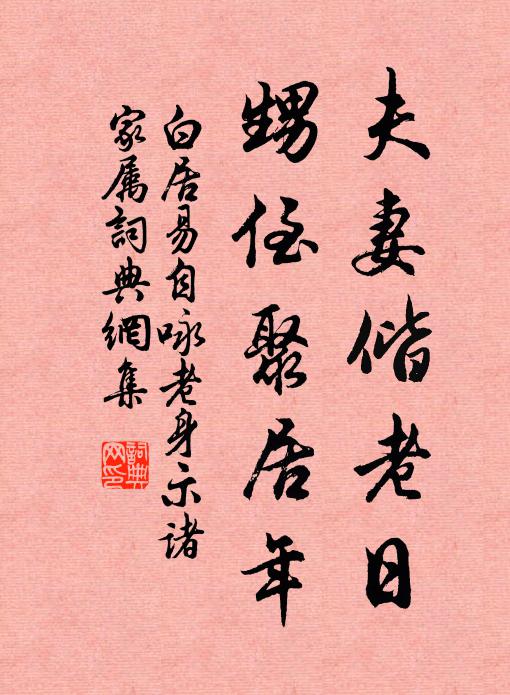 夫妻偕老日
甥侄聚居年
白居易自咏老身示诸
家属詞典網集
詞典网印